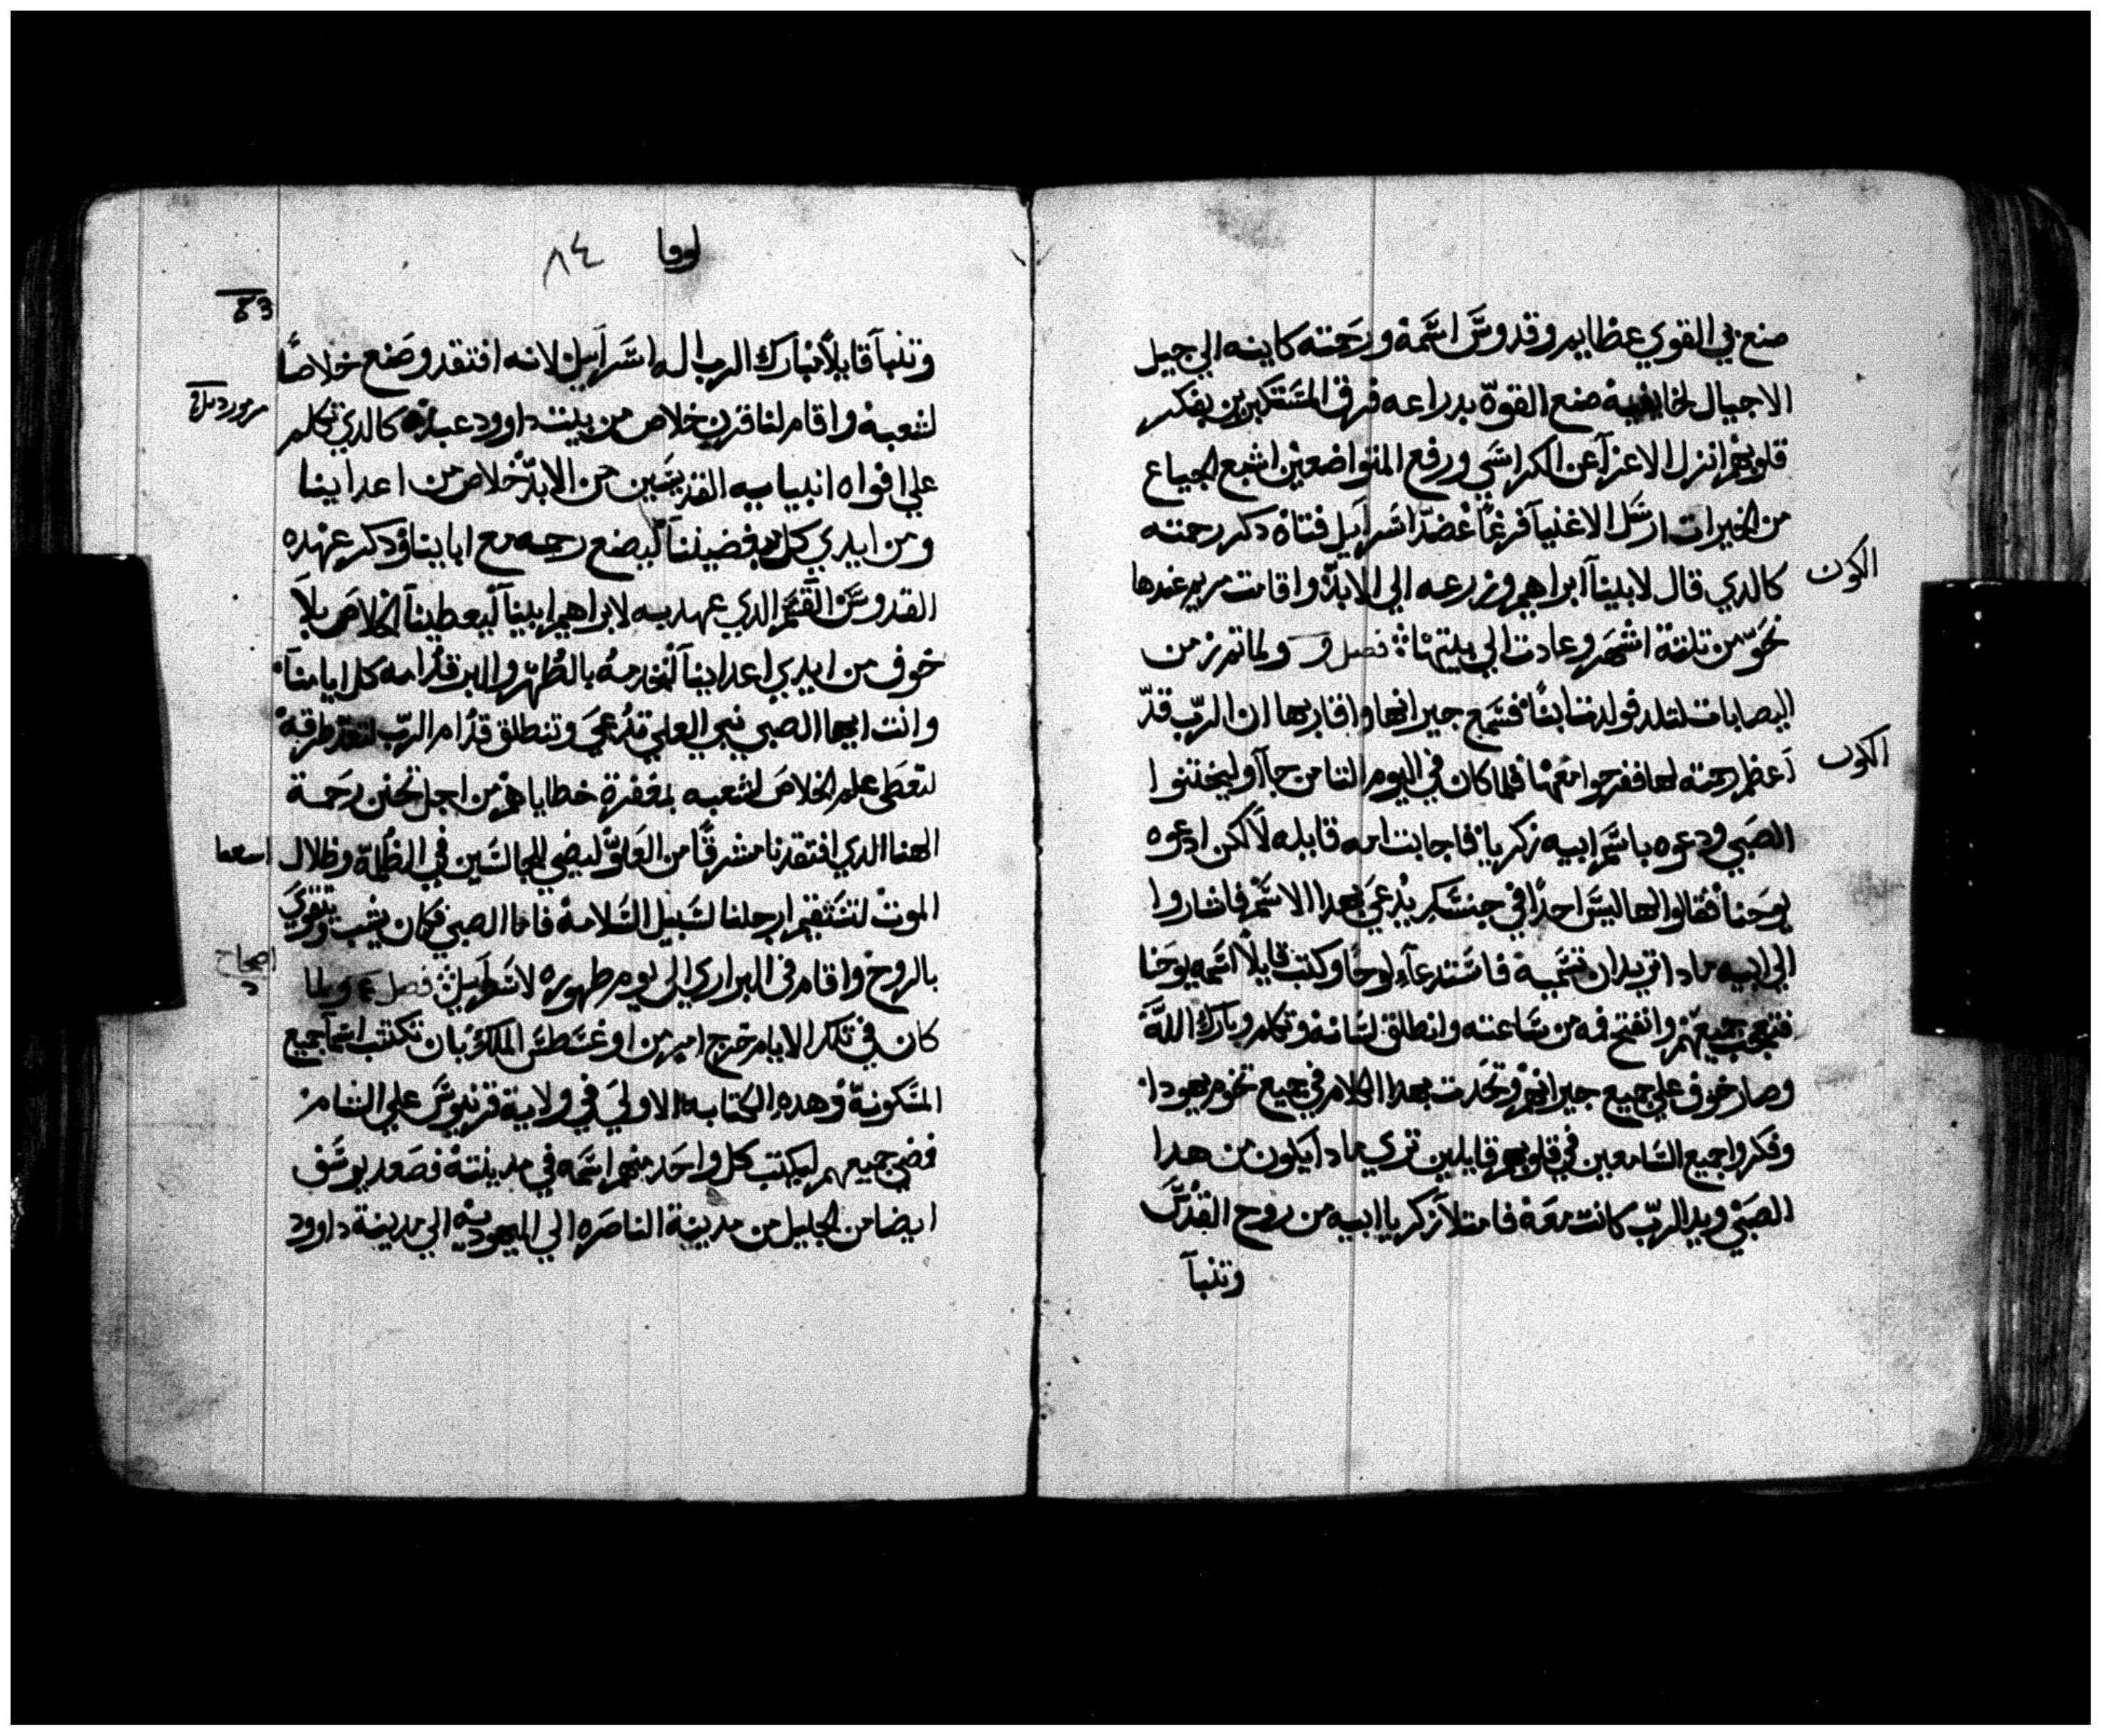 صنع بي القوي عظايم وقدوس اسمه ورحمته كاينه الي جيل
الاجيال لخايفيه صنع القوة بدراعه فرق المستكبرين بفكر
قلوبهم انزل الاعزآ عن الكراسي ورفع المتواضعين اشبع الجياع
من الخيرات ارسل الاغنيآ فرغًا عضد اسرايل فتاه دكر رحمته
كالدي قال لابينآ ابراهيم وزرعه الي الابد واقامت مريم عندها
الكون
نحو من تلتة اشهر وعادت الي بيتها فصل و ولما تم زمن
اليصابات لتلد فولدت ابنًا فسمع جيرانها واقاربها ان الرب قد
اعظم رحمته لها ففرحوا معها فلما كان في اليوم التامن جآو ليختنوا
الكون
الصبي ودعوه باسم ابيه زكريا فاجابت امه قايله لا لكن ادعوه
يوحنا فقالوا لها ليس احدًا في جنسك يدعي بهدا الاسم فاشاروا
الي ابيه مادا تريد ان تسميه فاستدعآ لوحًا وكتب قايلاً اسمه يوحنا
فتعجب جميعهم وانفتح فمه من ساعته وانطلق لسانه وتكلم وبارك الله
وصار خوف علي جميع جيرانهم وتحدت بهدا الكلام في جميع تخوم يهودا
وفكروا جميع السامعين في قلوبهم قايلين تري مادا يكون من هدا
الصبي ويد الرب كانت معه فامتلا زكريا ابيه من روح القدس
وتنبآ
لوقا ٨٤
وتنبآ قايلاً تبارك الرب اله اسرايل لانه افتقد وصنع خلاصًا
لشعبه واقام لنا قرن خلاص من بيت داوود عبده كالدي تكلم
علي افواه انبيايه القديسين من الابد خلاص من اعداينا
ومن ايدي كل مبغضيننا ليصنع رحمه مع اباينا ودكر عهده
القدوس القسم الدي عهد به لابراهيم ابينآ ليعطينآ الخلاص بلا
خوف من ايدي اعداينآ لنخدمه بالطهر والبر قدامه كل ايامنآ
وانت ايها الصبي نبي العلي تدعي وتنطلق قدام الرب لتعد طرقه
لتعطي علم الخلاص لشعبه بمغفرة خطاياهم من اجل تحنن رحمة
الهنا الدي افتقدنا مشرقًا من العلو ليضي للجالسين في الظلمة وظلال
الموت لتستقيم ارجلنا لسبيل السلامه فاما الصبي فكان يشب ويتقوي
بالروح واقام في البراري الي يوم ظهوره لاسرايل فصل ع ولما
اصحاح
كان في تلك الايام خرج امر من اوغسطس الملك بان تكتب اسمآ جميع
المسكونة وهده الكتابه الاولي في ولاية قرنيوس علي الشام
فمضي جميعهم ليكتب كل واحد منهم اسمه في مدينته فصعد يوسف
ايضا من الجليل من مدينة الناصره الي اليهودية الي مدينة داوود